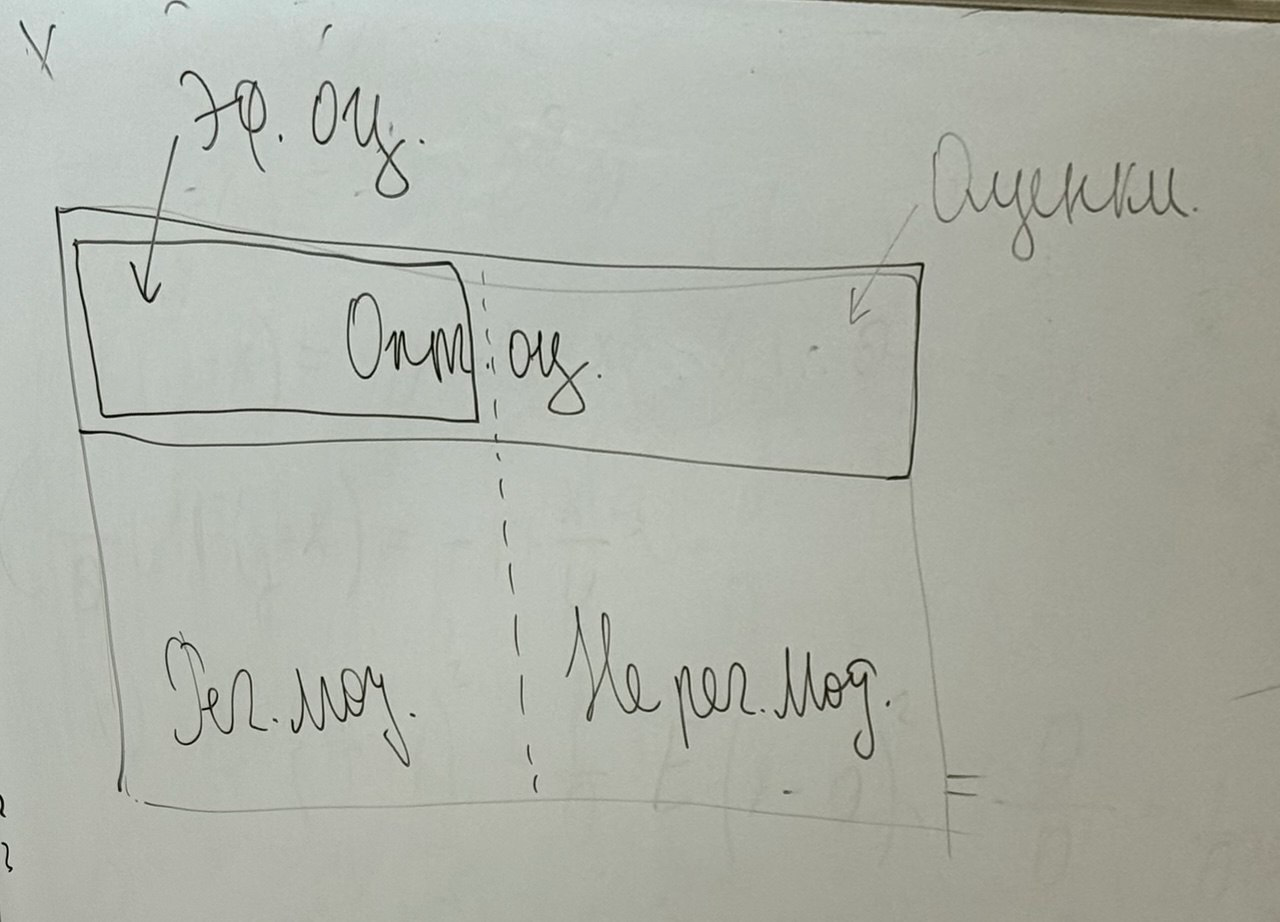 Эф. оц.
Оценки.
Опт. оц.
Рег. мод.
Не рег. мод.